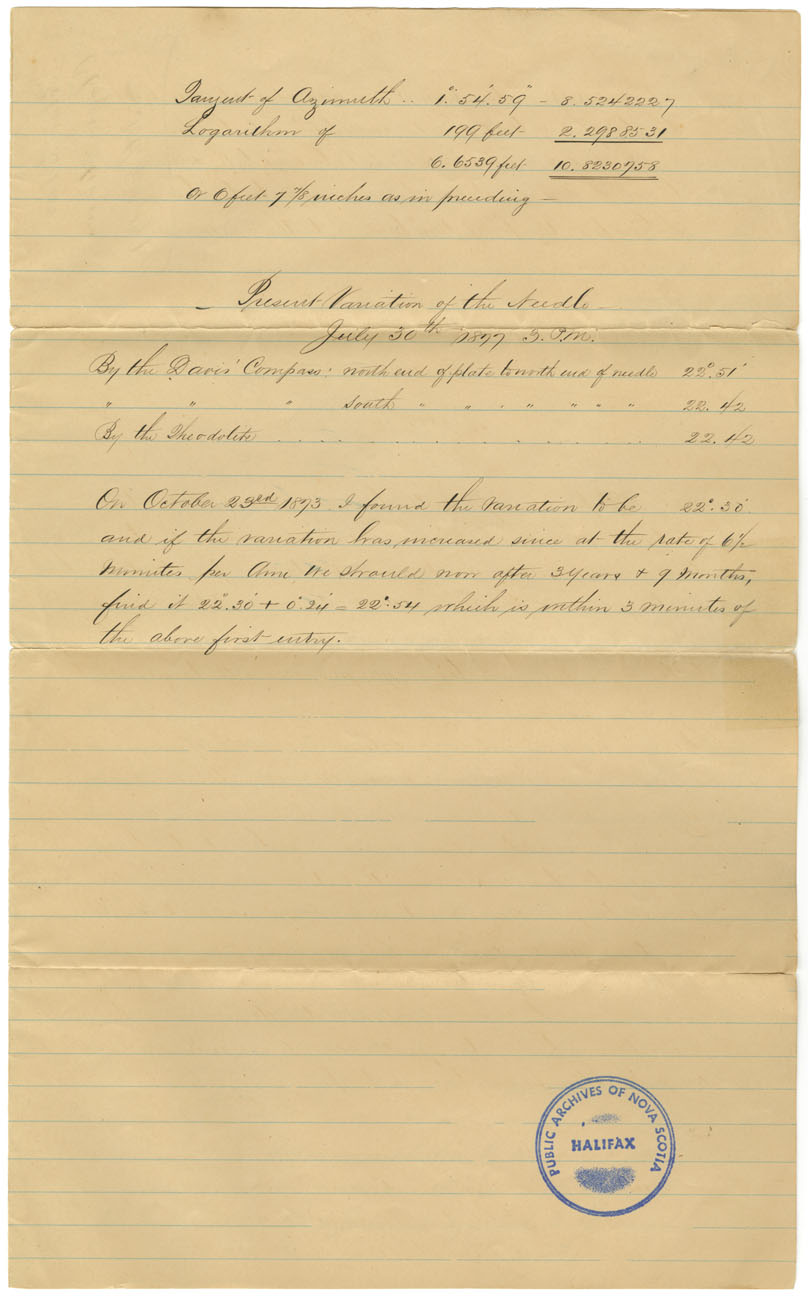 Tangent of Azimuth .. 1°. 54'. 59" - 8. 5242227
Logarithm of 199 feet 2. 2988531
6. 6539 feet 10. 8230758
Or 6 feet 7 7/8 inches as in preceding —
— Present Variation of the Needle
July 30th 1877 3. P.M.
By the Davis' Compass: north end of plate to north end of needle 22°. 51'
" " " South " " " " " " " 22. 42
By the Theodolite . . . . . . . . . . 22. 42
On October 23rd 1873 I found the variation to be 22°. 30'
and if the variation has increased since at the rate of 6 1/2
Minutes per Ann. We should now after 3 Years + 9 Months,
find it 22°. 30' + 0°. 24' = 22°. 54 which is within 3 minutes of
the above first entry.
PUBLIC ARCHIVES OF NOVA SCOTIA
HALIFAX